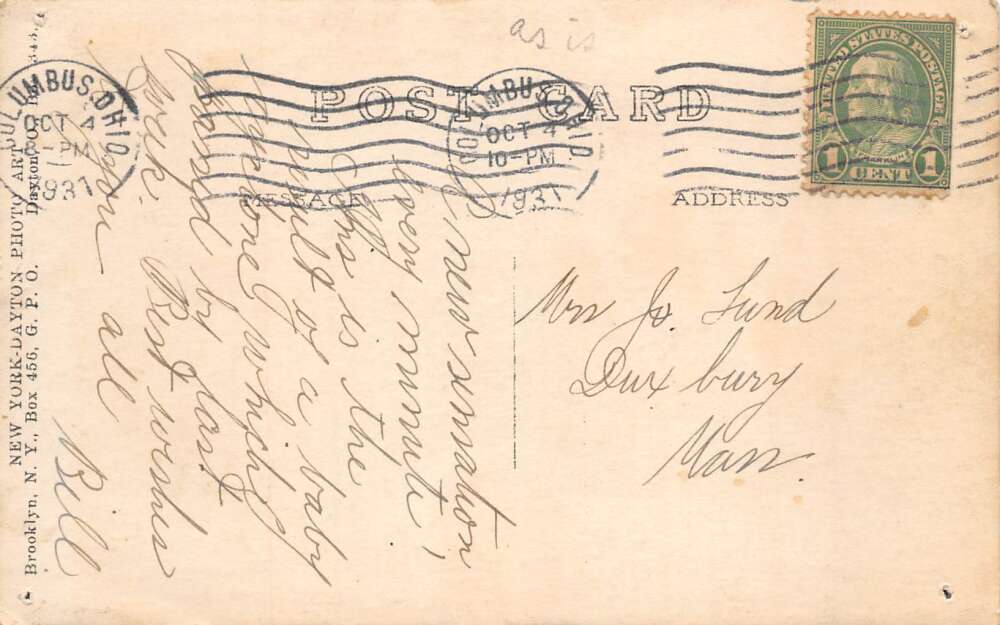 as is
POST CARD
COLUMBUS, OHIO
OCT 4
-PM
1931
COLUMBUS, OHIO
OCT 4
10-PM
1931
UNITED STATES POSTAGE
FRANKLIN
1 CENT 1
MESSAGE
ADDRESS
A new sensation
every minute,
This is the
result of a baby
cyclone which
arrived by last
week. Best wishes
from all
Bill
Mrs Jo. Lund
Duxbury
Mass.
NEW YORK-DAYTON PHOTO ART
Brooklyn, N. Y., Box 456, G. P. O. Dayton, O.